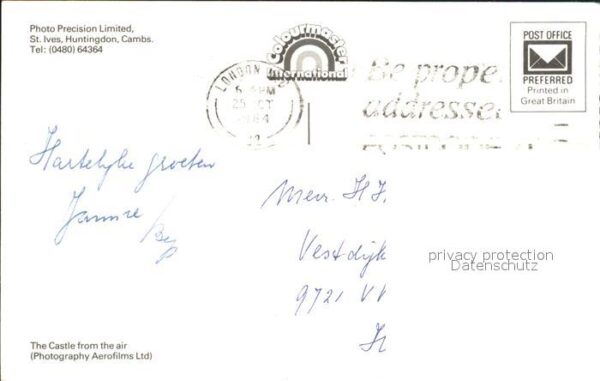 Photo Precision Limited,
St. Ives, Huntingdon, Cambs.
Tel: (0480) 64364
Colourmaster
International
POST OFFICE
PREFERRED
Printed in
Great Britain
LONDON
PM
25 OCT
1984
Be prope
addresse
Hartelijke groeten
Mevr. H.
Vestdijk
9721 V
privacy protection
Datenschutz
The Castle from the air
(Photography Aerofilms Ltd)